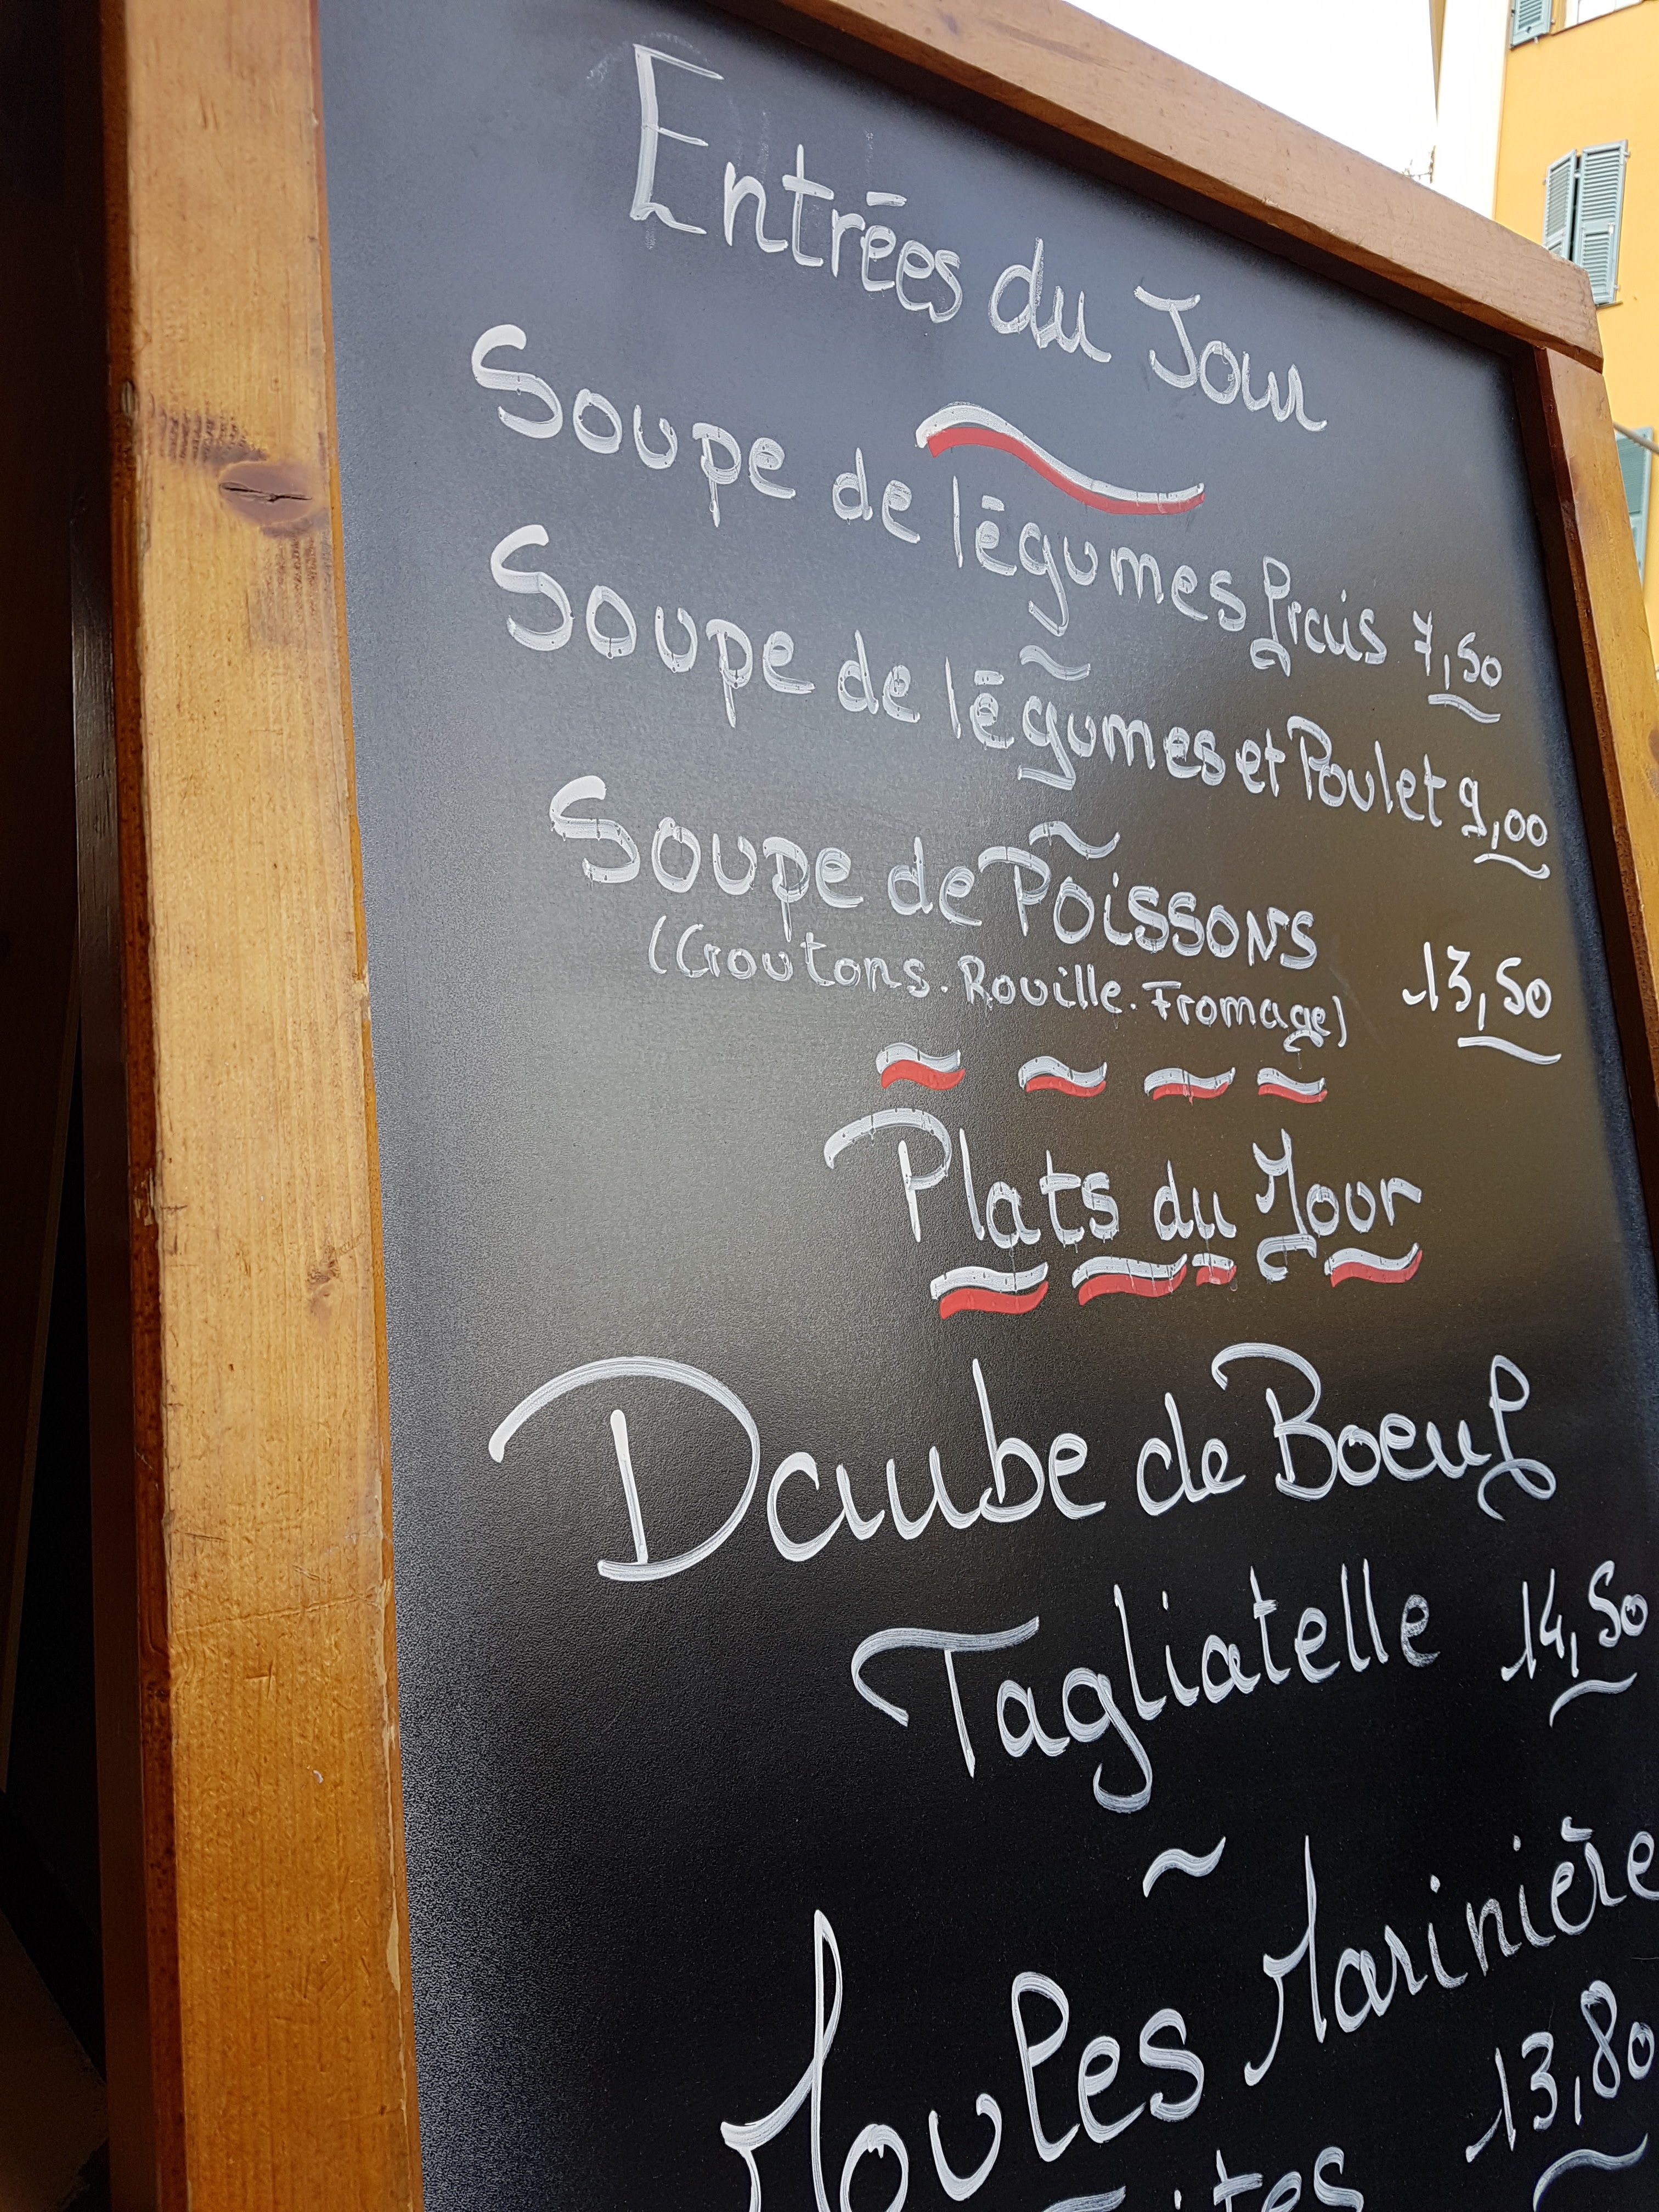 Entrées du Jour
Soupe de légumes frais 7,50
Soupe de légumes et Poulet 9,00
Soupe de Poissons
(Croutons. Rouille. Fromage) 13,50
Plats du Jour
Daube de Boeuf
Tagliatelle 14,50
Moules Marinière
13,80